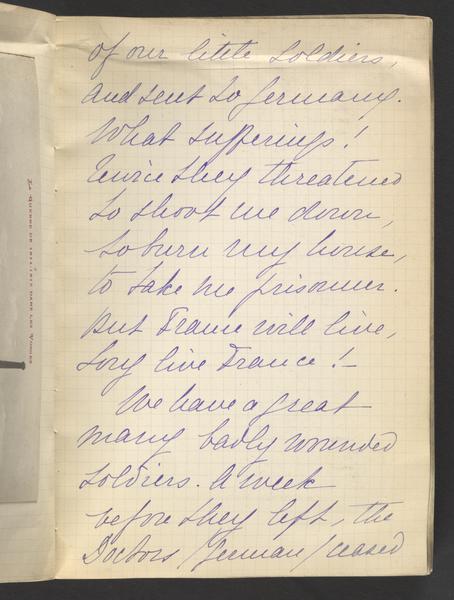 of our little soldiers,
and sent to Germany.
What sufferings!
Twice they threatened
to shoot me down,
to burn my house,
to take me prisonner.
But France will live,
Long live France! –
We have a great
many badly wounded
soldiers. A week
before they left, the
Doctors /German/ ceased
LA GUERRE DE 1914-1915 DANS LES VOSGES